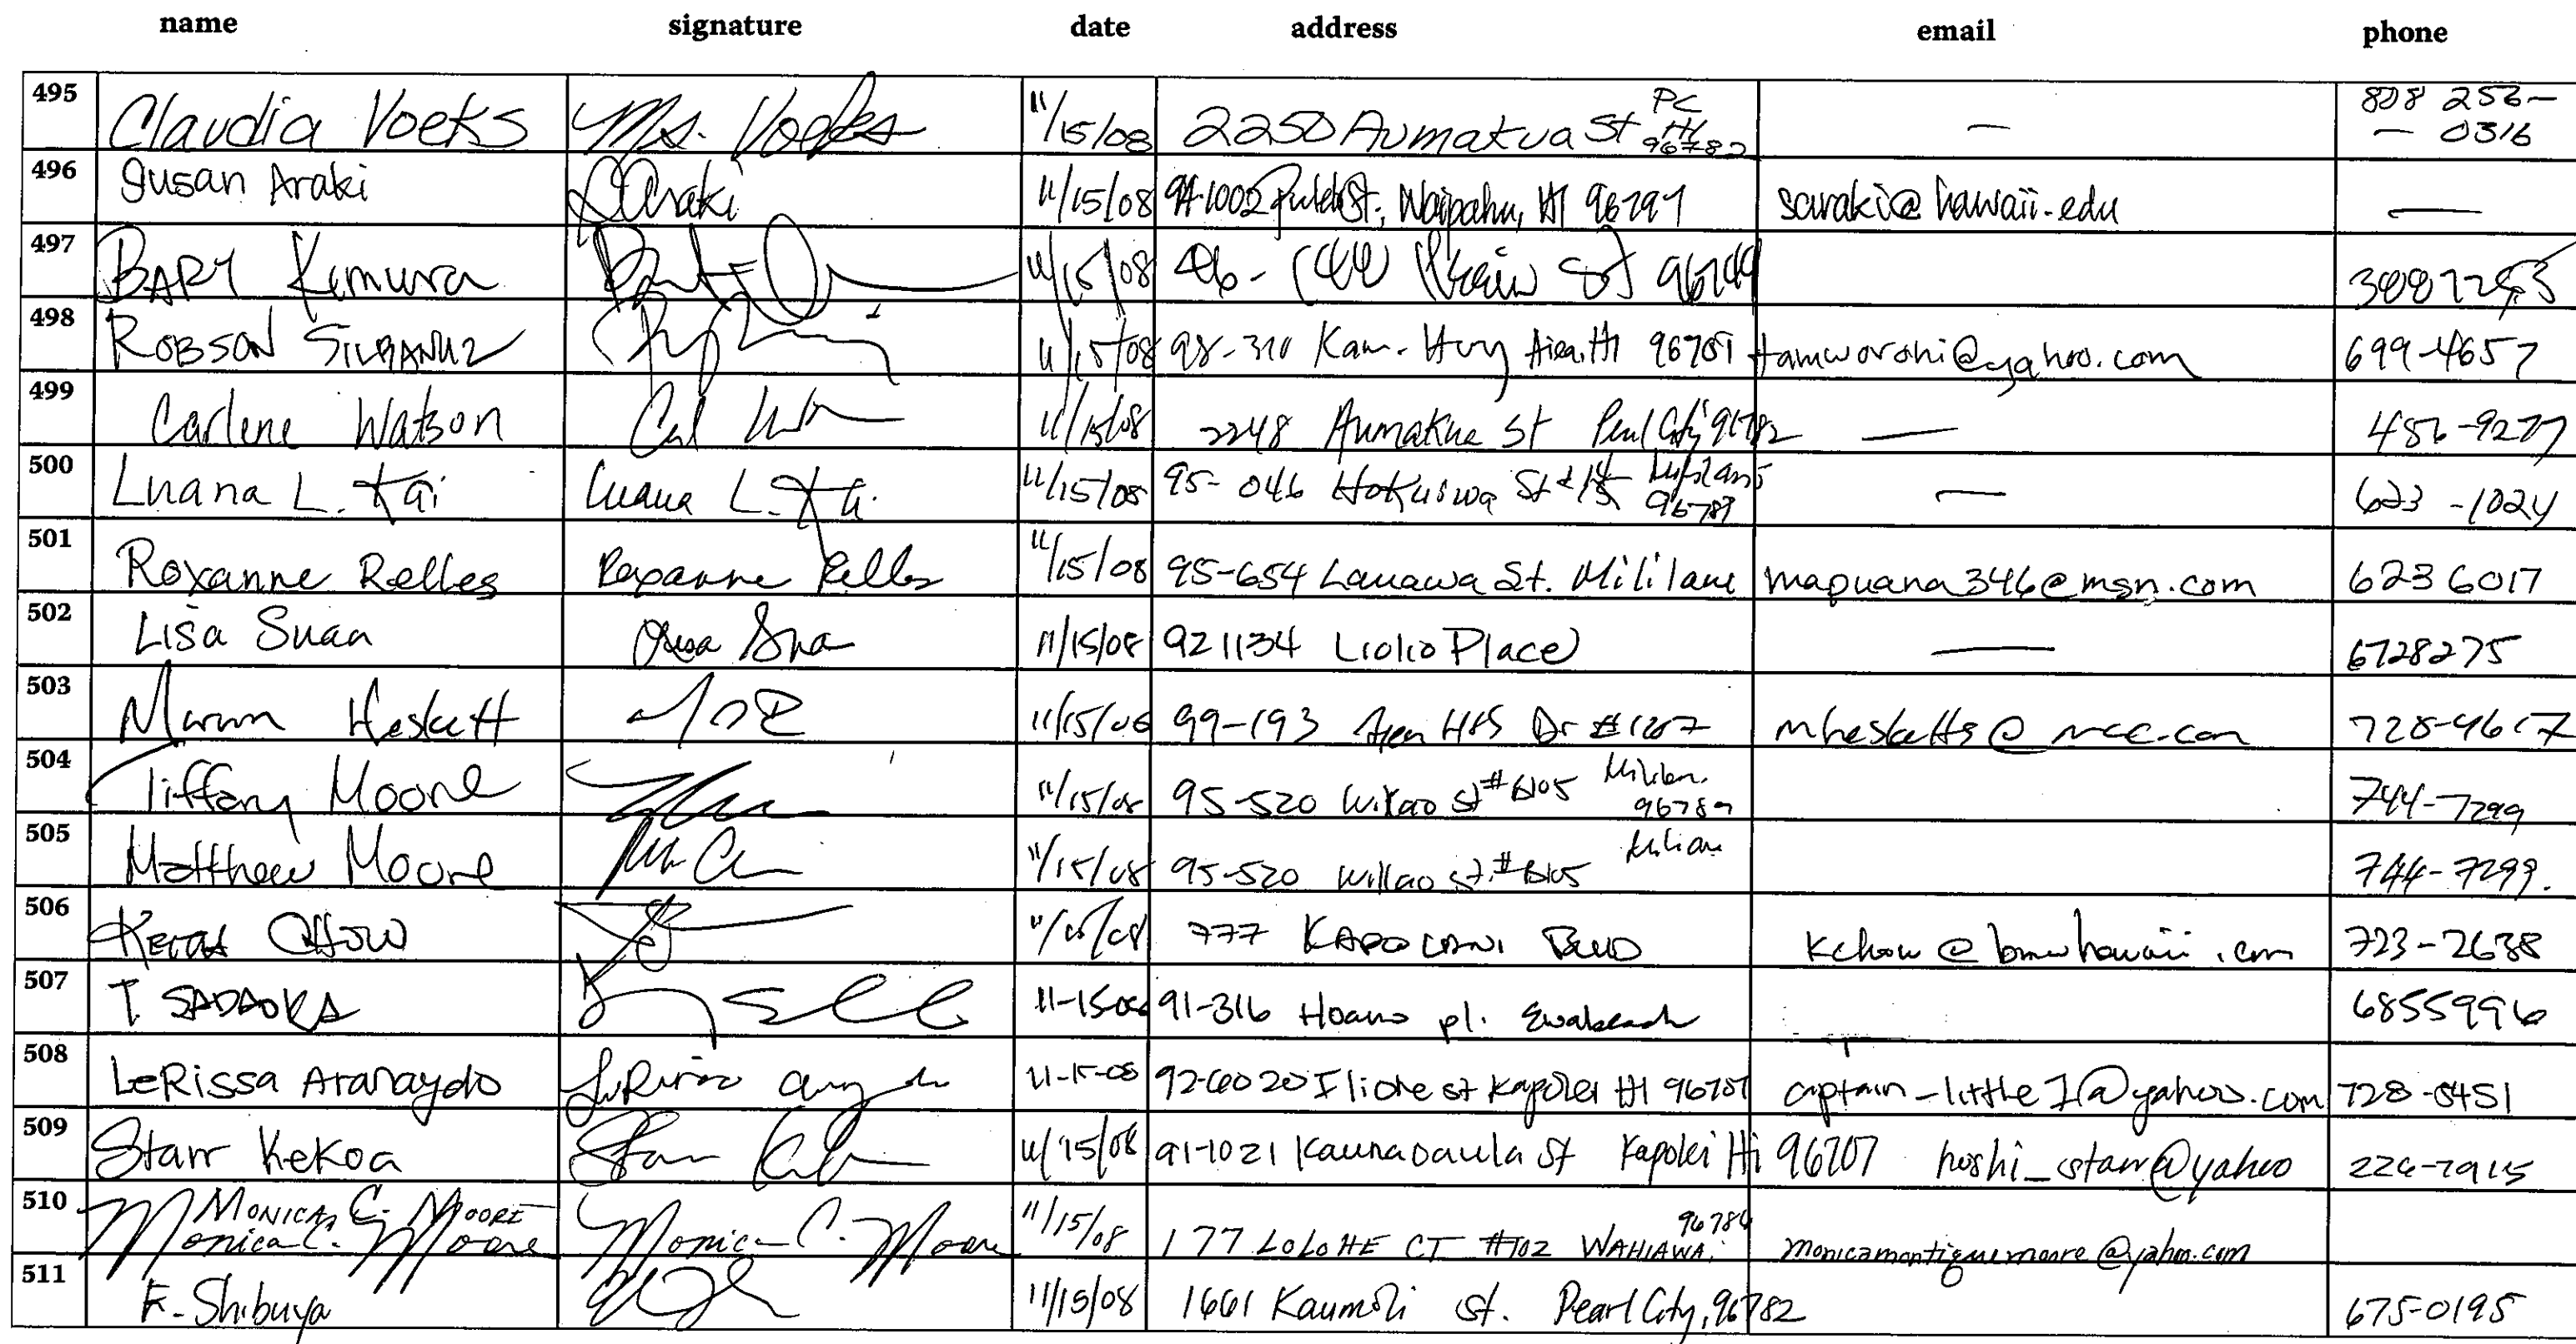 name signature date address email phone
495 Claudia Voeks Ms. Voeks 11/15/08 2250 Aumakua St PC HI 96782 — 808 256- - 0316
496 Susan Araki S Araki 11/15/08 94-1002 St., Waipahu, HI 96797 saraki@hawaii.edu —
497 BARY Kimura 11/15/08 46- St 96744
498 ROBSON 11/15/08 98-310 Kam. Hwy Aiea, HI 96701 tamworohi@yahoo.com 699-4657
499 Carlene Watson 11/15/08 2248 Aumakua St Pearl City 96782 — 456-9277
500 Luana L. Kai Luana L. Kai 11/15/08 95-046 Hokuiwa St Mililani 96789 — 623-1024
501 Roxanne Relles Roxanne Relles 11/15/08 95-654 Lanawa St. Mililani mapuana346@msn.com 623 6017
502 Lisa Suan Lisa Sua 11/15/08 921134 Liolio Place — 6728275
503 Heskett 11/15/08 99-193 Aiea Hts Dr #1207 728-4617
504 Tiffany Moore 11/15/08 95-520 Wikao st #B105 Mililani 96789 744-7299
505 Matthew Moore 11/15/08 95-520 Wikao st. #B105 744-7299.
506 Keith CHOW 777 KAPOLANI BLVD kchow@bmwhawaii.com 723-2638
507 T SADAOKA 11-15-08 91-316 Hoano pl. Ewabeach 6855996
508 LeRissa Aranaydo 11-15-08 92-6020 Iliohe st Kapolei HI 96707 captain-little1@yahoo.com 728-0451
509 Starr Kekoa Starr 11/15/08 91-1021 Kaunaoaula St Kapolei Hi 96707 hoshi_starr@yahoo
510 MONICA C. MOORE Monica C. Moore Monica C. Moore 11/15/08 177 LOLOHE CT #102 WAHIAWA. 96786 monicamontiguemoore@yahoo.com
511 F. Shibuya 11/15/08 1661 Kaumoli st. Pearl City, 96782 675-0195